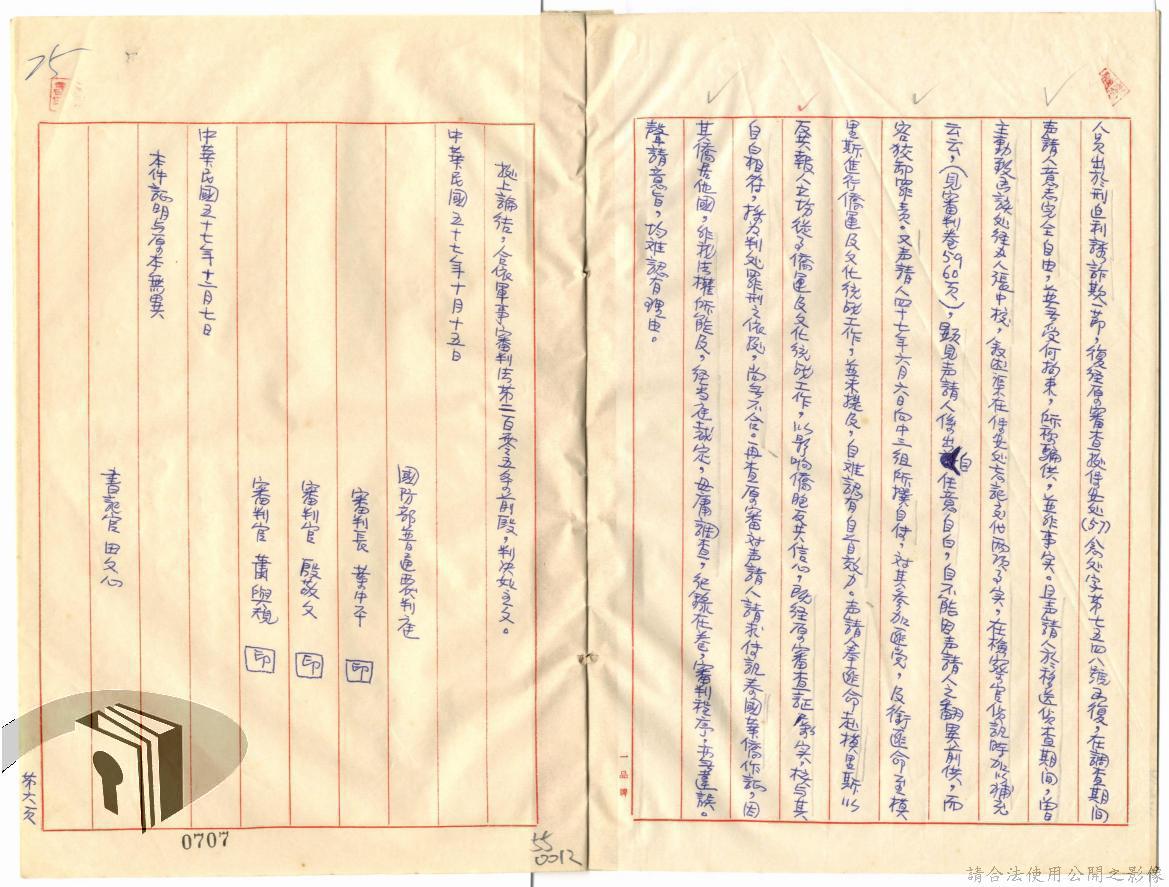 人員出於刑迫利誘詐欺一節，復經原審查據保安處(57)念处字第七五四八號函復，在調查期間
声請人意志完全自由，並無受何拘束，所稱騙供，並非事实。且声請人於移送偵查期間，曾
主動致函該处経办人張中校，敘述案在保安处忘記交代两項事实，在檢察官偵訊時加以補充
云云，(見審判卷59 60頁)，顯見声請人係出自任意自白，自不能因声請人之翻異前供，而
容狡卸罪責。又声請人四十七年六月六日向中三組所撰自傳，对其參加匪党，及銜匪命至模
里斯進行僑運及文化统战工作，並未提及，自难認有自首效力。声請人奉匪命赴模里斯以
反共報人立场從事僑運及文化统战工作，以影响僑胞反共信心，既经原審查証屬实，核与其
自白相符，採为判处罪刑之依据，尚無不合。再查原審对声請人請求傳訊泰國華僑作証，因
其僑居他國，非我法權所能及，經当庭裁定，毋庸調查，纪錄在卷，審判程序，亦無違誤。
聲請意旨，均难認有理由。
一品牌
據上論结，合依軍事審判法第二百零五条前段，判决如主文。
中華民國五十七年十月十五日
國防部普通覆判庭
審判長 葉中平 印
審判官 殷敬文 印
審判官 蕭與規 印
中華民國五十七年十二月七日
本件証明与原本無異
書記官 田文心
第六頁
75
0707
55
0012
請合法使用公開之影像